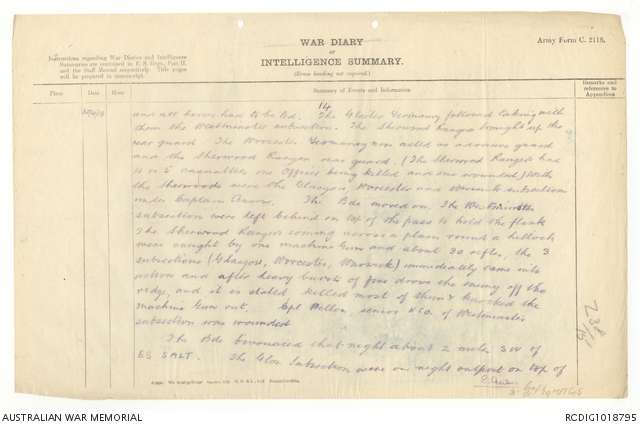 WAR DIARY
or
INTELLIGENCE SUMMARY.
(Erase heading not required.)
Army Form C. 2118.
Instructions regarding War Diaries and Intelligence
Summaries are contained in F. S. Regs., Part II.
and the Staff Manual respectively. Title pages
will be prepared in manuscript.
Place Date Hour Summary of Events and Information Remarks and references to Appendices
14
and all horses had to be led. The Gloster Yeomanry followed taking with
them the Westminster subsection. The Sherwood Rangers brought up the
rear guard. The Worcester Yeomanry now acted as advance guard
and the Sherwood Rangers rear guard. (The Sherwood Rangers had
casualties one Officer being killed and one wounded) With
the Sherwoods were the Glasgow, Worcester and Warwick subsection
under Captain. The Bde moved on. The Westminster
subsection were left behind on top of the pass to hold the flank
The Sherwood Rangers coming across a plain round a hillock
were caught by one machine gun and about 30 rifles, the 3
subsections (Glasgow, Worcester, Warwick) immediately came into
action and after heavy bursts of fire drove the enemy off the
ridge, and it is stated killed most of them & knocked the
machine gun out. senior NCO. of Westminster
subsection was wounded
The Bde bivouaced that night about 2 miles SW of
ES SALT. The Glos Subsection were on night outpost on top of
AUSTRALIAN WAR MEMORIAL
RCDIG1018795